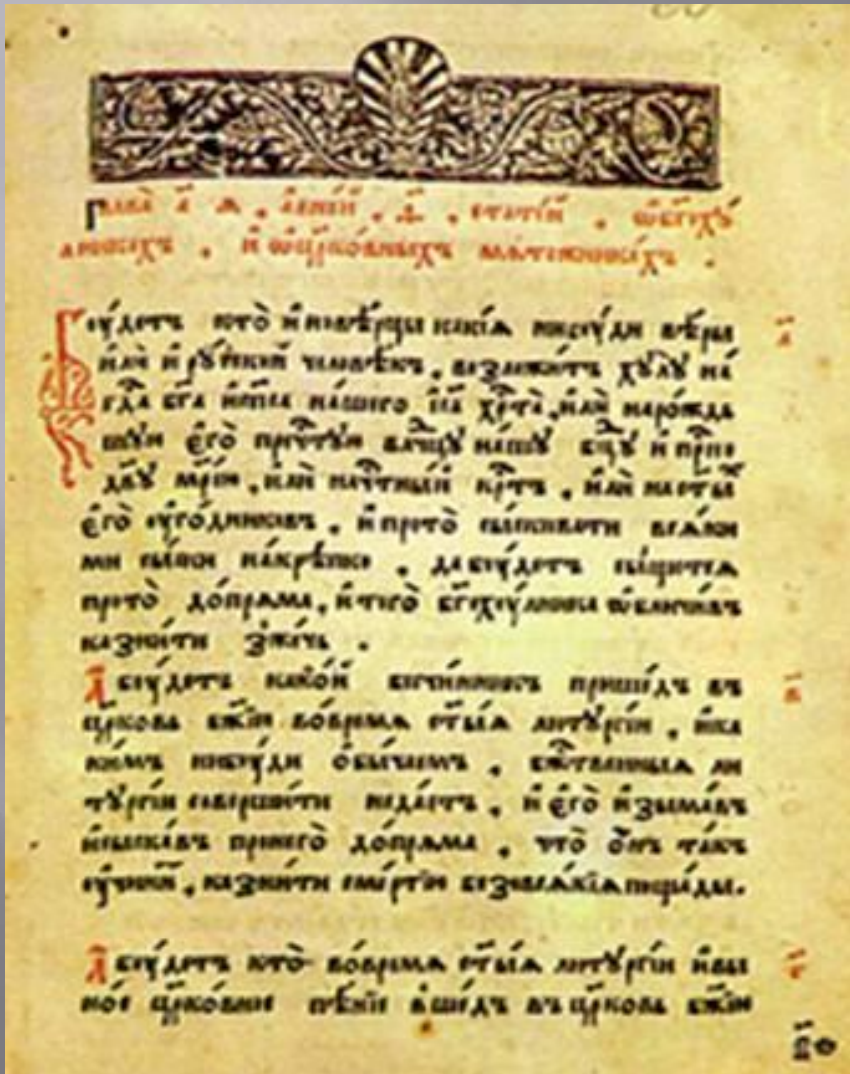 Глава̀ а҃ ѧ . а́вне́й . ѳ҃ . стате́й . ѡ҆бг҃оху́
лникахъ . и҆ ѡ҆цр҃ко́вныхъ мѧте́жникахъ .
Бꙋ́детъ кто̀ и҆новѣ́рцы какі́ѧ нибꙋ́ди вѣ́ры а҃
и҆лѝ и҆ рꙋ́скїй человѣ́къ , возложи́тъ хꙋлꙋ̀ на́
гд҇а бг҃а и҆сп҃са на́шего і҆с҃а хрⷭ҇та̀ , и҆лѝ наро́жд
шꙋю є҆го̀ прчⷭ҇тꙋю влⷣчцꙋ на́шꙋ бцⷣꙋ и҆ прⷭ҇но
дв҃ꙋ мр҃і́ю , и҆лѝ начⷭ҇тны́й крⷭ҇тъ , и҆лѝ насты҃х
є҆го̀ ᲂу҆го́дниковъ , и҆ прото̀ сы́скивати всѧ́ки
ми сы́ски на́крѣпко . да бꙋ́детъ сы́щетсѧ
прото̀ до́прѧма , и҆ того̀ бг҃охꙋ́лника ѡ҆бличи́въ
казни́ти зже́чь .
А҆ бꙋ́детъ како́й безчи́нникъ прише́дъ въ в҃
цр҃ковь бж҃їю во́времѧ ст҃ы́ѧ литꙋргі́и , и҆ка
ки́мъ нибꙋ́ди ѻ҆бы́чаемъ . бжⷭ҇твенныѧ ли
тꙋргі́и соверши́ти неда́стъ , и҆ є҆го̀ и҆зыма́въ
и҆сыска́въ пронего̀ до́прѧма , что̀ ѻ҆́нъ та́къ
ᲂу҆чини́т , казни́ти сме́ртїю безовсѧ́кїѧ поща́ды .
А҆ бꙋ́детъ кто̀ во́времѧ ст҃ы́ѧ литꙋргі́и и҆вы г҃
но́е цр҃ко́вное пѣ́нїе вше́дъ въ цр҃ковь бж҃їю